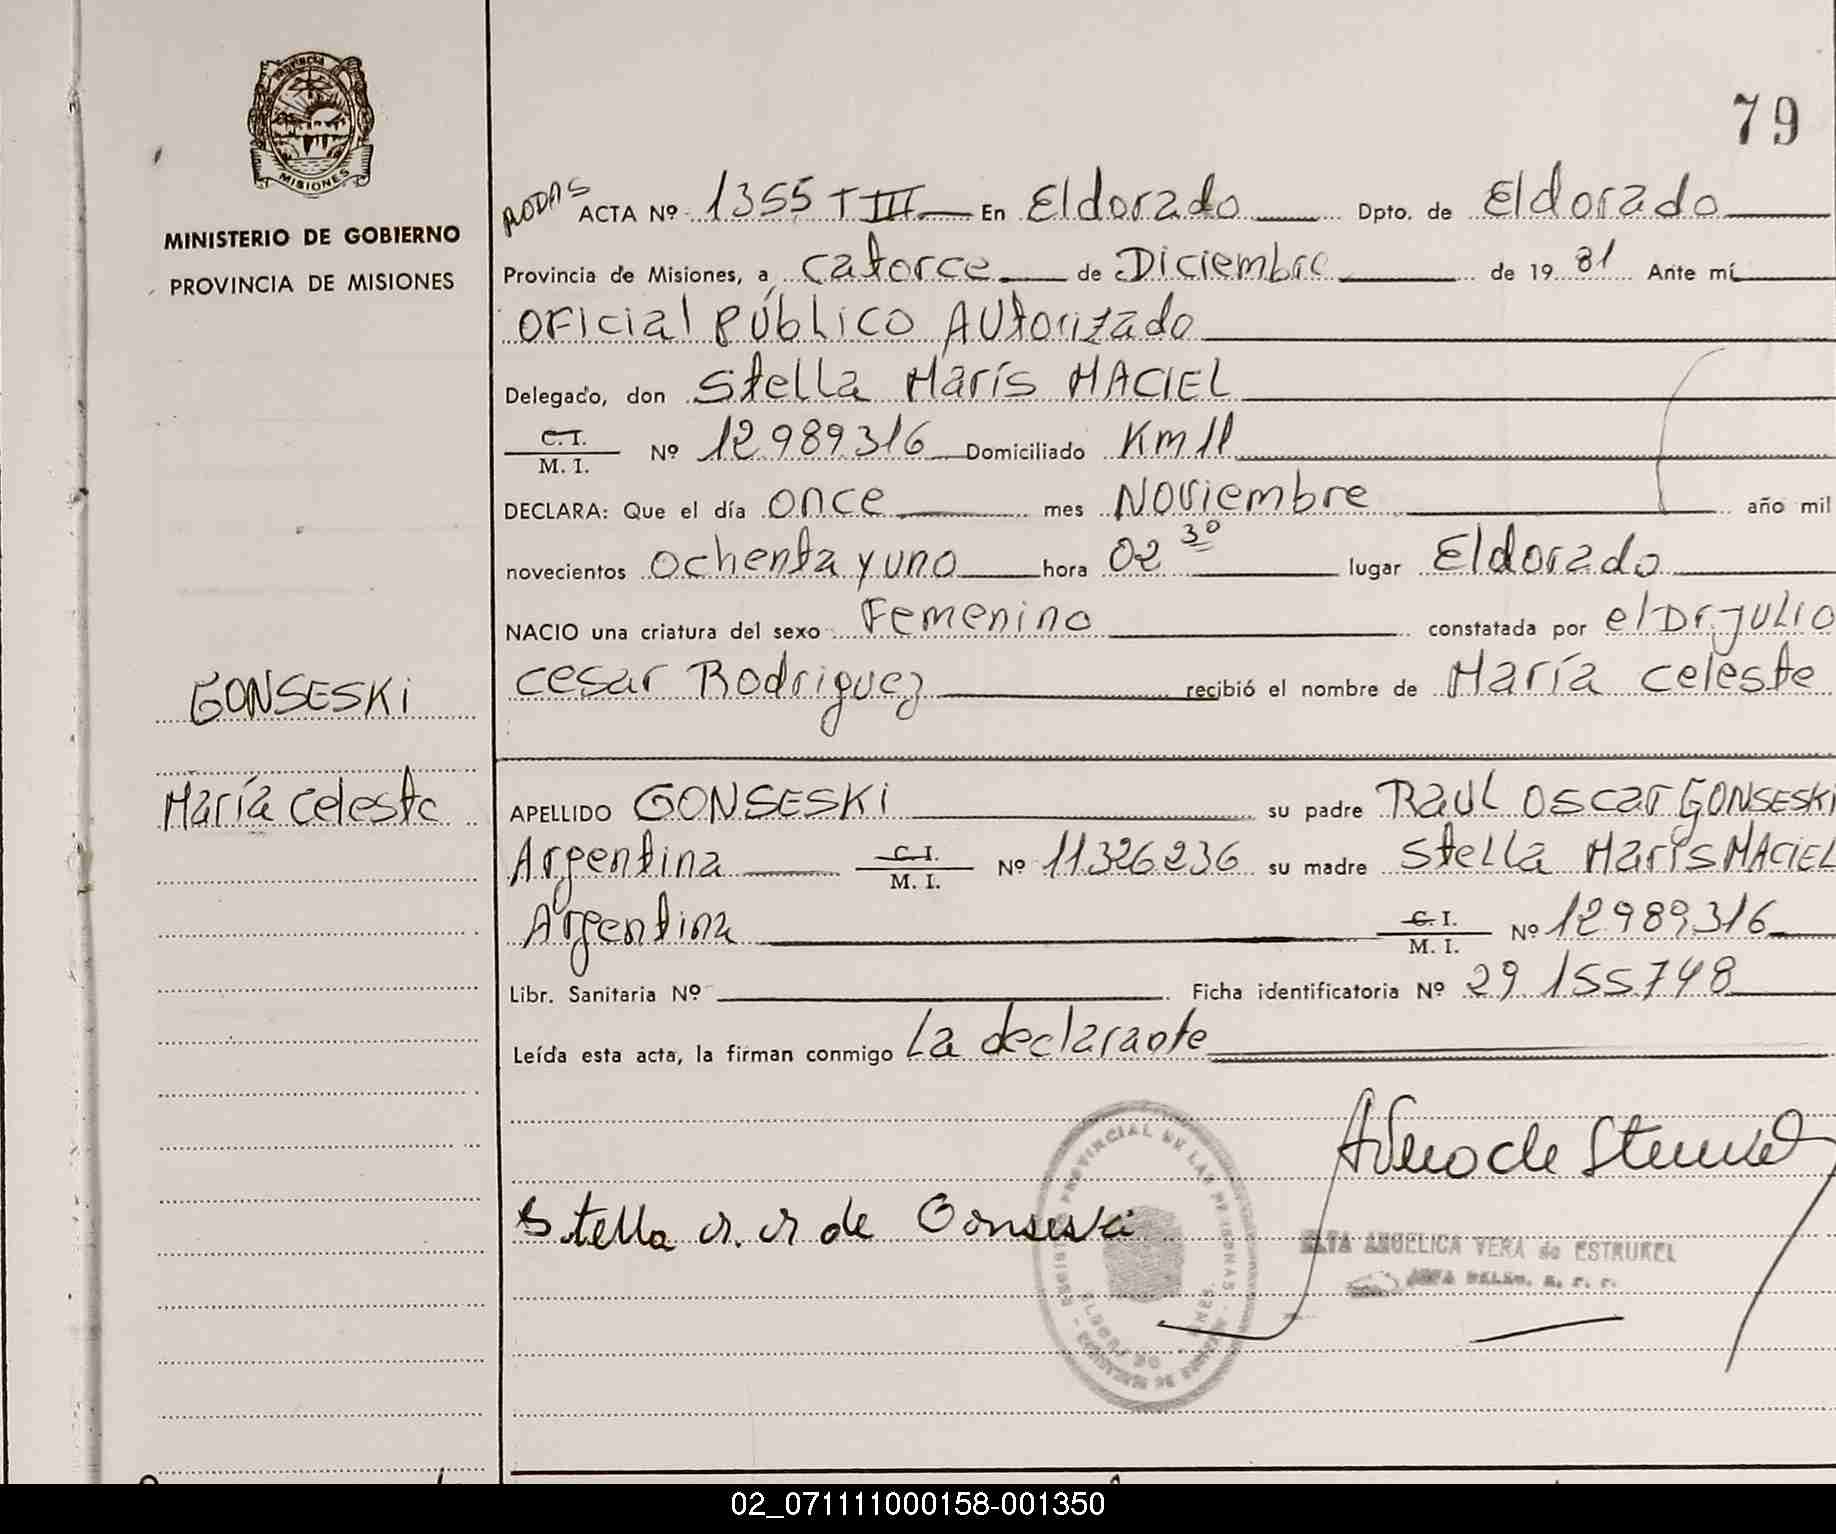 Provincia
MISIONES
MINISTERIO DE GOBIERNO
PROVINCIA DE MISIONES
GONSESKi
María Celeste
79
RODAS ACTA Nº 1355 T III En Eldorado Dpto. de Eldorado
Provincia de Misiones, a catorce de Diciembre de 19 81 Ante mí
Oficial Público Autorizado
Delegado, don Stella Marís MACIEL
C. I. / M. I. Nº 12989316 Domiciliado Km 11
DECLARA: Que el día once mes Noviembre año mil
novecientos ochenta y uno hora 02 30 lugar Eldorado
NACIO una criatura del sexo Femenino constatada por el Dr. Julio
Cesar Rodriguez recibió el nombre de María Celeste
APELLIDO GONSESKi su padre Raul Oscar GONSESKi
Argentina C. I. / M. I. Nº 11326236 su madre Stella Marís MACIEL
Argentina C. I. / M. I. Nº 12989316
Libr. Sanitaria Nº Ficha identificatoria Nº 29 155748
Leída esta acta, la firman conmigo La declarante
Stella M. M de Gonseski
PROVINCIAL DE LAS PERSONAS
ELDORADO
ANGELICA VERA de ESTRUREL
02_071111000158-001350